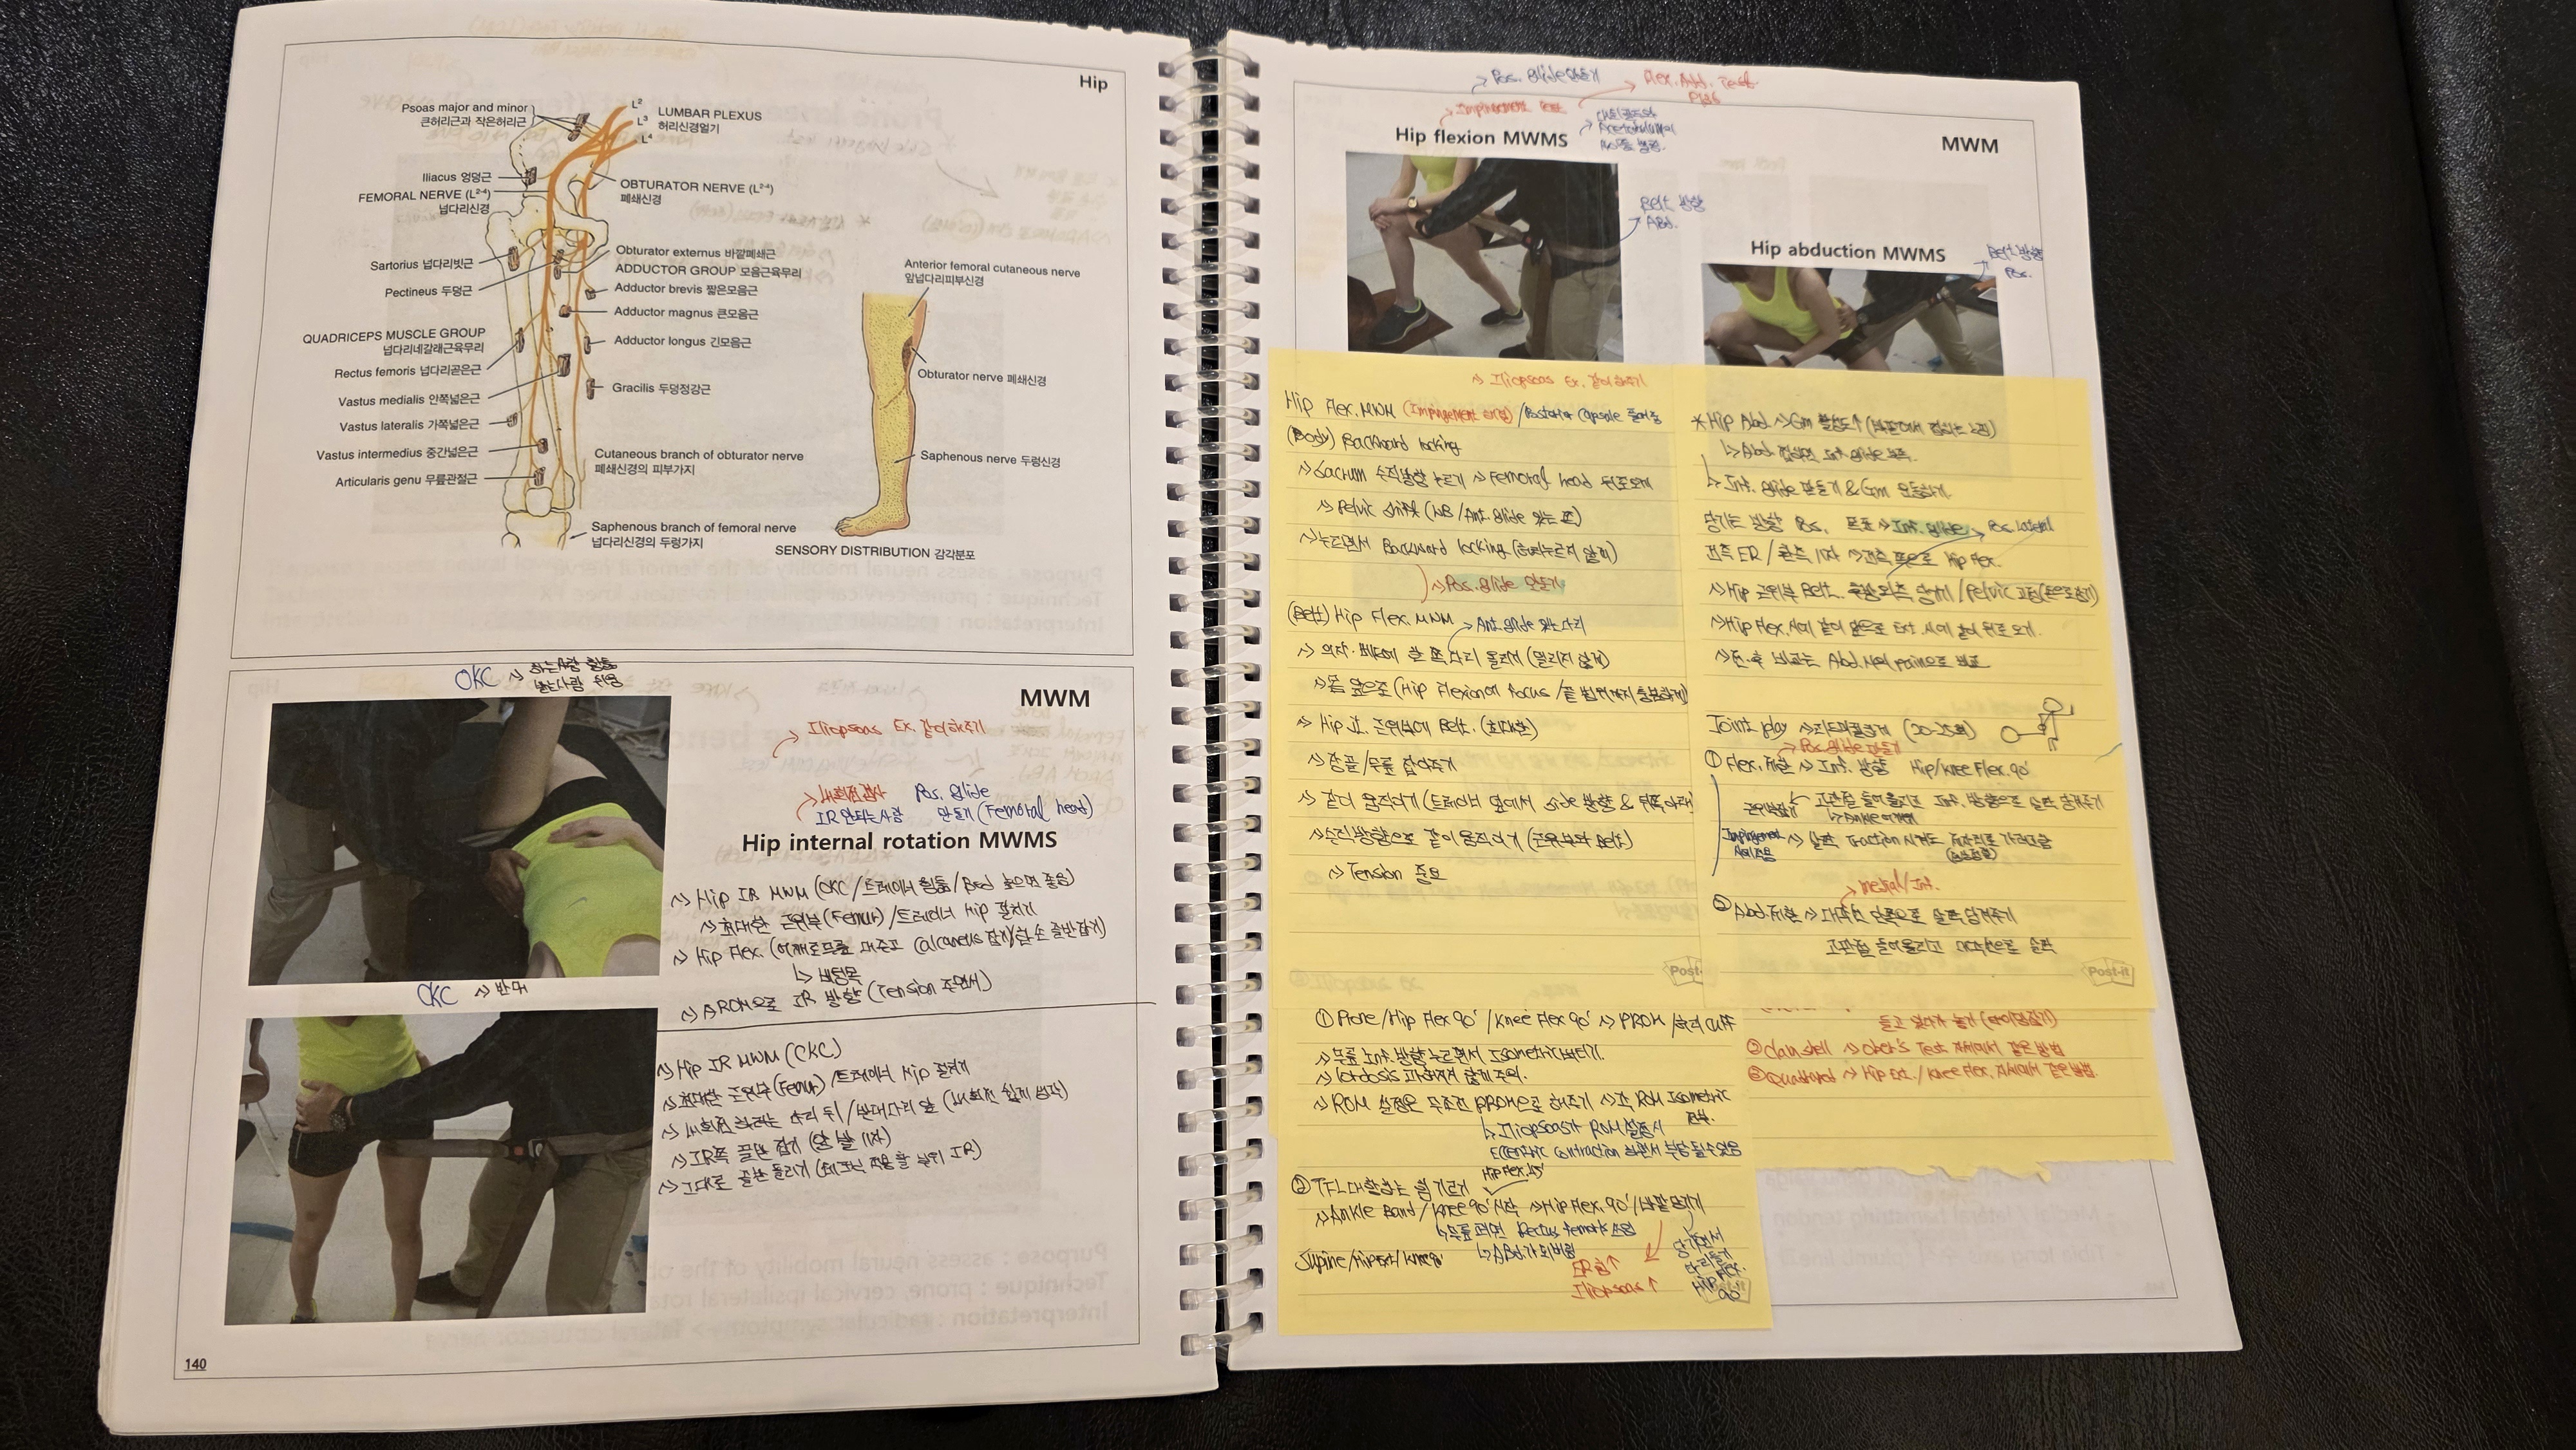 Hip
Psoas major and minor
큰허리근과 작은허리근
L2
L3
L4
LUMBAR PLEXUS
허리신경얼기
Iliacus 엉덩근
FEMORAL NERVE (L2-4)
넙다리신경
OBTURATOR NERVE (L2-4)
폐쇄신경
Sartorius 넙다리빗근
Pectineus 두덩근
Obturator externus 바깥폐쇄근
ADDUCTOR GROUP 모음근육무리
Adductor brevis 짧은모음근
Adductor magnus 큰모음근
Adductor longus 긴모음근
Gracilis 두덩정강근
QUADRICEPS MUSCLE GROUP
넙다리네갈래근육무리
Rectus femoris 넙다리곧은근
Vastus medialis 안쪽넓은근
Vastus lateralis 가쪽넓은근
Vastus intermedius 중간넓은근
Articularis genu 무릎관절근
Cutaneous branch of obturator nerve
폐쇄신경의 피부가지
Saphenous branch of femoral nerve
넙다리신경의 두렁가지
Anterior femoral cutaneous nerve
앞넙다리피부신경
Obturator nerve 폐쇄신경
Saphenous nerve 두렁신경
SENSORY DISTRIBUTION 감각분포
OKC → 하는사람 힘듦
받는사람 쉬움
MWM
Iliopsoas Ex. 같이해주기
내회전검사 Pos. Glide
IR 안되는사람 만들기 (Femoral head)
Hip internal rotation MWMS
→ Hip IR MWM (OKC/트레이너 힘듦/Bed 높으면 좋음)
→ 최대한 근위부(Femur)/트레이너 Hip 펼치기
→ Hip Flex. (어깨로무릎 대주고 Calcaneus 잡기/한 손 골반잡기)
→ AROM으로 IR 방향 (Tension 주면서)
CKC → 반대
→ Hip IR MWM (CKC)
→ 최대한 근위부(Femur)/트레이너 Hip 펼치기
→ 내회전 하려는 다리 뒤/반대다리 앞 (내회전 쉽게 생각)
→ IR쪽 골반 잡기 (양 발 11자)
→ 그대로 골반 돌리기
140
Pos. Glide만들기 → Flex. Add. Test
Impingement Test
Hip flexion MWMS
Acetabulum
MWM
Belt 방향
Abd.
Hip abduction MWMS
Belt 방향
Pos.
→ Iliopsoas Ex. 같이해주기
Hip Flex. MWM (Impingement) / Posterior Capsule 늘어남
(Body) Backward locking
→ Sacrum 수직방향 누르기 → Femoral head 뒤로오게
→ Pelvic shift (WB/Ant. glide 있는 쪽)
→ 누르면서 Backward locking (허리누르지 않기)
→ Pos. glide 만들기
(Belt) Hip Flex. MWM → Ant. glide 있는 다리
→ 의자·베드에 한 쪽 다리 올리기 (밀리지 않게)
→ 몸 앞으로 (Hip Flexion에 Focus / 끝 범위까지 충분하게)
→ Hip jt. 근위부에 Belt. (최대한)
→ 무릎 잡아주기
→ 같이 움직이기 (트레이너 옆에서 side 방향 & 뒤쪽아래)
→ 수직방향으로 같이 움직이기 (근위부의 Belt)
→ Tension 중요
Post-it
* Hip Abd. → Gm 활성도↑
→ Abd. Inf. glide 부족.
→ Inf. glide 만들기 & Gm 운동하기.
당기는 방향 Pos. 목표 → Inf. glide → Pos. Lateral
건측 ER / 환측 11자 → 건측 쪽으로 Hip Flex.
→ Hip 근위부 Belt. 후방외측 당기기 / Pelvic 고정(손으로잡기)
→ Hip Flex. 시에 같이 앞으로 Ext. 시에 같이 뒤로 오기.
→ 전·후 비교는 Abd. 시의 pain으로 비교
Joint play (20-25회)
→ Pos. glide 만들기
① Flex. 제한 → Inf. 방향 Hip/knee Flex. 90°
고관절 들어올리고 Inf. 방향으로 살짝 당겨주기
Impingement
→ 살짝 Traction 시켜도 제자리로 가려고함
→ medial/Inf.
② Abd. 제한 → 대각선 안쪽으로 살짝 당겨주기
고관절 들어올리고 대각선으로 살짝
Post-it
① Prone/Hip Flex 90°/Knee Flex 90° → PROM/허리 Cuff
→ 무릎 Inf. 방향 누르면서 Isometric버티기.
→ lordosis 과해지지 않게 주의.
→ ROM 설정은 무조건 PROM으로 해주기 → 각 ROM Isometric
→ Iliopsoas가 ROM설정시
Eccentric contraction 하면서 부담 될수있음
Hip Flex. 45°
② TFL 대항하는 힘 기르기
→ Ankle Band/Knee 90° 시작 → Hip Flex. 90°/바깥 당기기
→ 무릎 펴면 Rectus femoris 쓰임
Supine/Hip Ext/Knee 90°
ER힘↑
Iliopsoas↑
당기면서
다리들기
Hip Flex.
90°
들고 있다가 놓기
② Clam shell → Ober's Test 자세에서 같은 방법
③ Quadruped → Hip Ext./Knee Flex. 자세에서 같은방법.